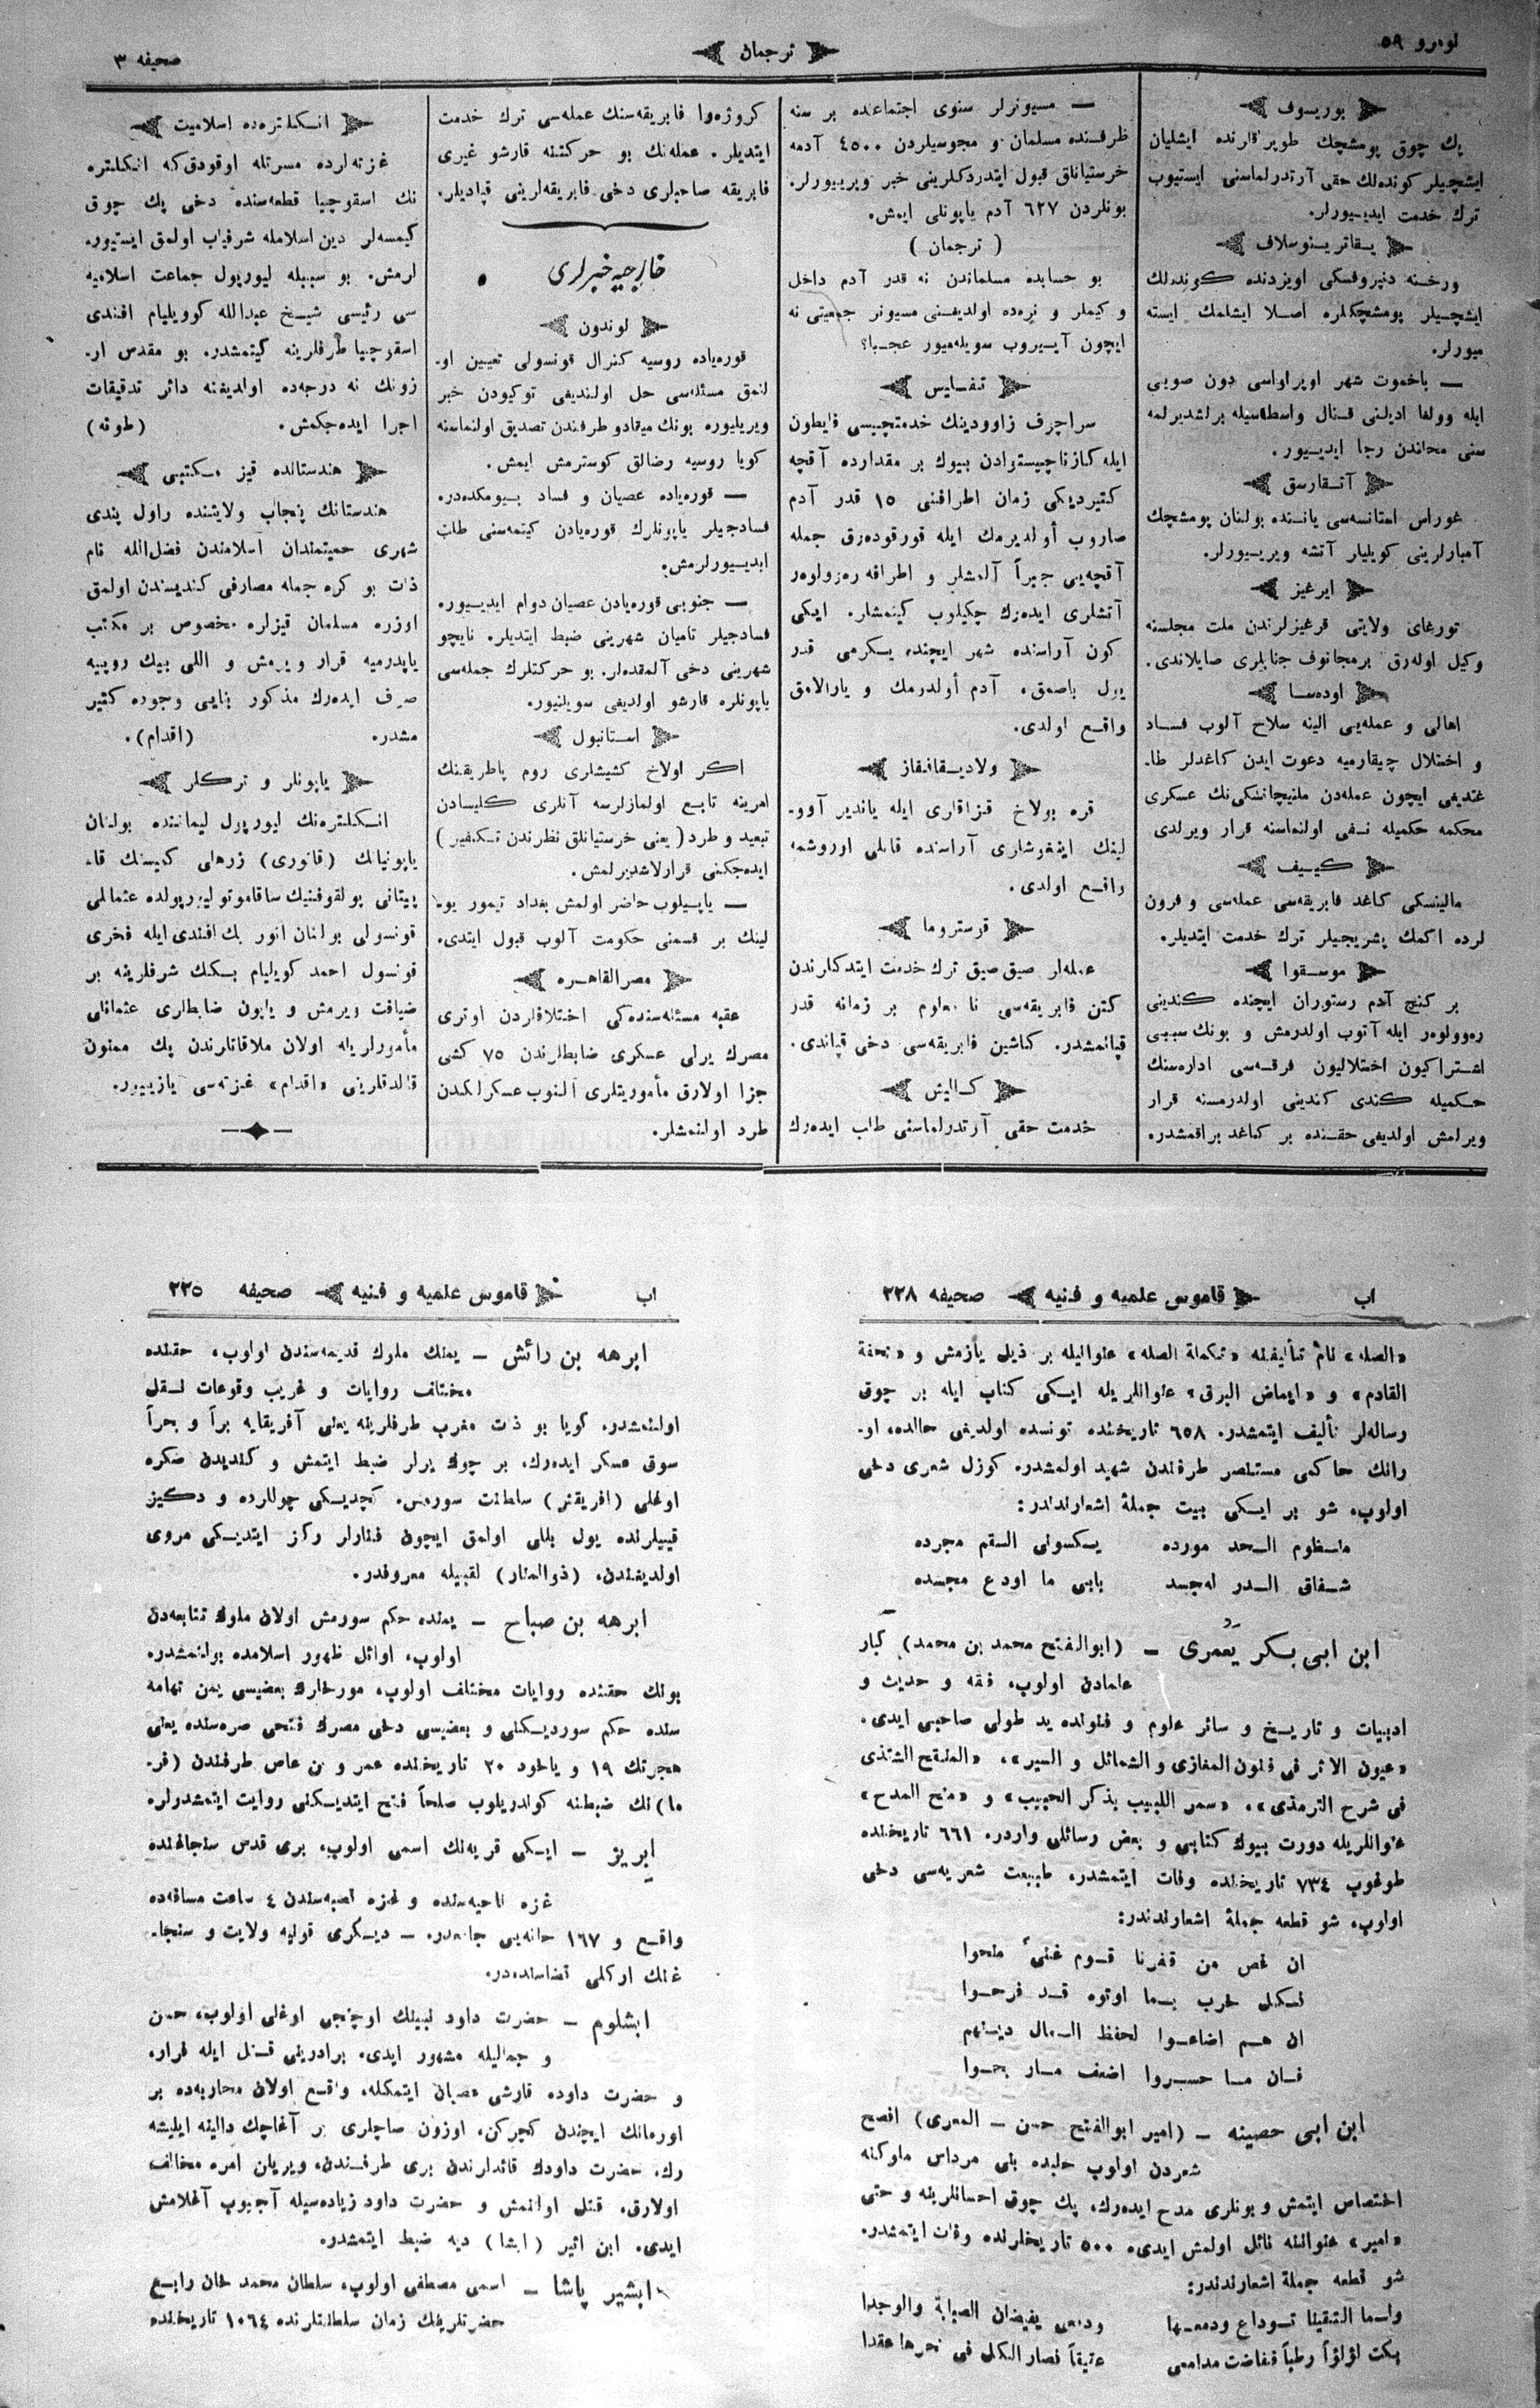 نومرو ٥٩
ترجمان
صحیفه ٣
بوریسوف
پك چوق پومشچك طوپراقلرنده ایشلیان
ایشچیلر كوندەلك حقی آرتدرلماسنی ایستیوب
ترك خدمت ایدییورلر.
یقاترینوسلاف
ورخنه دنیروفسكی اویزدنده كوندەلك
ایشچیلر پومشچكلره اصلا ایشلمك ایسته
میورلر.
— باخموت شهر اوپراواسی دون صویی
ایله وولغا ادیلنی قنال واسطەسیله برلشدیرلمه
سنی محلندن رجا ایدییور.
آتقارسق
غوراس استانسەسی یاننده بولنان پومشچك
آمبارلرینی كویلیلر آتشه ویرییورلر.
ایرغیز
تورغای ولایتی قرغیزلرندن ملت مجلسنه
وكیل اولەرق برمجانوف جنابلری صایلاندی.
اودەسا
اهالی و عملەیی الینه سلاح آلوب فساد
و اختلال چیقارمیه دعوت ایدن كاغدلر طا-
غتدیغی ایچون عملەدن ملنیچانسكی‌نك عسكری
محكمه حكمیله نفی اولنماسنه قرار ویرلدی
كییف
مالینسكی كاغد فابریقەسی عملەسی و فرون
لرده اكمك پشریجیلر ترك خدمت ایتدیلر.
موسقوا
بر كنچ آدم رستوران ایچنده كندینی
رەوولوەر ایله آتوب اولدرمش و بونك سببی
اشتراكیون اختلالیون فرقەسی ادارەسنك
حكمیله كندی كندینی اولدرمسنه قرار
ویرلمش اولدیغی حقنده بر كاغد براقمشدر.
— مسیونرلر سنوی اجتماعده بر سنه
ظرفنده مسلمان و مجوسیلردن ٤٥٠٠ آدمه
خرستیانلق قبول ایتدردكلرینی خبر ویرییورلر.
بونلردن ٦٢٧ آدم یاپونلی ایمش.
( ترجمان )
بو حسابده مسلماندن نه قدر آدم داخل
و كیملر و نرەده اولدیغنی مسیونر جمعیتی نه
ایچون آییروب سویلەمیور عجبا؟
تفلیس
سراچزف زاوودینك خدمتچیسی فایطون
ایله كنازناچیستوادن بیوك بر مقدارده آقچه
كتیردیكی زمان اطرافنی ١٥ قدر آدم
صاروب أولدیرمك ایله قورقودەرق جمله
آقچەیی جبراً آلمشلر و اطرافه رەزولوەر
آتشلری ایدەرك چكیلوب كیتمشلر. ایكی
كون آراسنده شهر ایچنده یكرمی قدر
یول باصمق، آدم أولدرمك و یارالامق
واقع اولدی.
ولادیقافقاز
قره بولاخ قزاقلری ایله یاندیر آوو-
لینك اینغوشلری آراسنده قانلی اوروشمه
واقع اولدی.
قوستروما
عملەلر صیق صیق ترك خدمت ایتدكلرندن
كتن فابریقەسی نا معلوم بر زمانه قدر
قپانمشدر. كناشین فابریقەسی دخی قپاندی.
كالیش
خدمت حقی آرتدرلماسنی طلب ایدەرك
كروژەوا فابریقەسنك عملەسی ترك خدمت
ایتدیلر. عملەنك بو حركتنه قارشو غیری
فابریقه صاحبلری دخی فابریقەلرینی قپادیلر.
خارجیه خبرلری
لوندون
قورەیاده روسیه كنرال قونسولی تعیین او-
لنمق مسئلەسی حل اولندیغی توكیودن خبر
ویریلیور. بونك میقادو طرفندن تصدیق اولنماسنه
كویا روسیه رضالق كوسترمش ایمش.
— قورەیاده عصیان و فساد بیومكدەدر.
فسادجیلر یاپونلرك قورەیادن كیتمەسنی طلب
ایدییورلرمش.
— جنوبی قورەیادن عصیان دوام ایدییور.
فسادجیلر تامیان شهرینی ضبط ایتدیلر. نایچو
شهرینی دخی آلمقدەلر. بو حركتلرك جملەسی
یاپونلره قارشو اولدیغی سویلنیور.
استانبول
اكر اولاخ كشیشلری روم پاطریقنك
امرینه تابع اولمازلرسه آنلری كلیسادن
تبعید و طرد ( یعنی خرستیانلق نظرندن تكفیر )
ایدەجكنی قرارلاشدیرلمش.
— یاپیلوب حاضر اولمش بغداد تیمور یو-
لینك بر قسمنی حكومت آلوب قبول ایتدی.
مصر القاهره
عقبه مسئلەسندەكی اختلافلردن اوتری
مصرك یرلی عسكری ضابطلرندن ٧٥ كشی
جزا اولارق مأموریتلری آلنوب عسكرلكدن
طرد اولنمشلر.
انكلترەده اسلامیت
غزتەلرده مسرتله اوقودق‌كه انكلتره
نك اسقوچیا قطعەسنده دخی پك چوق
كیمسەلر دین اسلامله شرفیاب اولمق ایستیور-
لرمش. بو سببله لیورپول جماعت اسلامیه
سی رئیسی شیخ عبدالله كوویلیام افندی
اسقوچیا طرفلرینه كیتمشدر. بو مقدس ار-
زونك نه درجەده اولدیغنه دائر تدقیقات
اجرا ایدەجكمش. (طونه)
هندستانده قیز مكتبی
هندستانك پنجاب ولایتنده راول پندی
شهری حمیتمندان اسلامندن فضل‌الله نام
ذات بو كره جمله مصارفی كندیسندن اولمق
اوزره مسلمان قیزلره مخصوص بر مكتب
یاپدرمیه قرار ویرمش و اللی بیك روپیه
صرف ایدەرك مذكور بنایی وجوده كتیر
مشدر. (اقدام).
یاپونلر و تركلر
انكلترەنك لیورپول لیماننده بولنان
یاپونیانك (قاتوری) زرهلی كمیسنك قا-
پیتانی پولقوفنیك ساقاموتو لیورپولده عثمانلی
قونسولی بولنان انور بك افندی ایله فخری
قونسول احمد كویلیام بكك شرفلرینه بر
ضیافت ویرمش و یاپون ضابطلری عثمانلی
مأمورلریله اولان ملاقاتلرندن پك ممنون
قالدقلرینی «اقدام» غزتەسی یازییور.
اب
قاموس علمیه و فنیه
صحیفه ٢٢٨
«الصله» نام تألیفنه «تكملة الصله» عنوانیله بر ذیل یازمش و «تحفة
القادم» و «ایماض البرق» عنوانلریله ایكی كتاب ایله بر چوق
رسالەلر تألیف ایتمشدر. ٦٥٨ تاریخنده تونسده اولدیغی حالده، او-
رانك حاكمی مستنصر طرفندن شهید اولمشدر. كوزل شعری دخی
اولوب، شو بر ایكی بیت جملۀ اشعارندندر:
منظوم الخد مورده یكسونی السقم مجرده
شفاف الدر له جسد بابی ما اودع مجسده
ابن ابی بكر یَعمُری — (ابوالفتح محمد بن محمد) كبار
علمادن اولوب، فقه و حدیث و
ادبیات و تاریخ و سائر علوم و فنونده ید طولی صاحبی ایدی.
«عیون الاثر فی فنون المغازی و الشمائل و السیر»، «المنقح الشذی
فی شرح الترمذی»، «سمر اللبیب بذكر الحبیب» و «منح المدح»
عنوانلریله دورت بیوك كتابی و بعض رسائلی واردر. ٦٦١ تاریخنده
طوغوب ٧٣٤ تاریخنده وفات ایتمشدر. طبیعت شعریەسی دخی
اولوب، شو قطعه جملۀ اشعارندندر:
ان غص من فقرنا قوم غنیً منحوا
فكل حزب بما اوتوه قد فرحوا
ان هم اضاعوا لحفظ المال دینهم
فان ما خسروا اضعف ما ربحوا
ابن ابی حصینه — (امیر ابوالفتح حسن — المعری) افصح
شعردن اولوب حلبده بنی مرداس ملوكنه
اختصاص ایتمش و بونلری مدح ایدەرك، پك چوق احسانلرینه و حتی
«امیر» عنواننه نائل اولمش ایدی. ٥٠٠ تاریخلرنده وفات ایتمشدر.
شو قطعه جملۀ اشعارندندر:
ولما التقینا للوداع ودمعها ودمعی یفیضان الصبابة والوجدا
بكت لؤلؤاً رطباً ففاضت مدامعی عقیقاً فصار الكل فی نحرها عقدا
اب
قاموس علمیه و فنیه
صحیفه ٢٢٥
ابرهه بن رائش — یمنك ملوك قدیمەسندن اولوب، حقنده
مختلف روایات و غریب وقوعات نقل
اولنمشدر. كویا بو ذات مغرب طرفلرینه یعنی آفریقایه براً و بحراً
سوق عسكر ایدەرك، بر چوق یرلر ضبط ایتمش و كندیدن صكره
اوغلی (افریقش) سلطنت سورمش. كچدیكی چوللرده و دكیز
قییلرنده یول بللی اولمق ایچون فنارلر ركز ایتدیكی مروی
اولدیغندن، (ذوالمنار) لقبیله معروفدر.
ابرهه بن صباح — یمنده حكم سورمش اولان ملوك تتابعەدن
اولوب، اوائل ظهور اسلامده بولنمشدر.
بونك حقنده روایات مختلف اولوب، مورخلرك بعضیسی یمن تهامه
سنده حكم سوردیكنی و بعضیسی دخی مصرك فتحی صرەسنده یعنی
هجرتك ١٩ و یاخود ٢٠ تاریخنده عمر و بن عاص طرفندن (فر-
ما) نك ضبطنه كوندریلوب صلحاً فتح ایتدیكنی روایت ایتمشدرلر.
ابریز — ایكی قریەنك اسمی اولوب، بری قدس سنجاغنده
غزه ناحیەسنده و غزه قصبەسندن ٤ ساعت مسافەده
واقع و ١٦٧ خانەیی جامعدر. — دیكری قونیه ولایت و سنجا-
غنك اركلی قضاسندەدر.
ابشلوم — حضرت داود نبینك اوچنجی اوغلی اولوب، حسن
و جمالیله مشهور ایدی. برادرینی قتل ایله فرار،
و حضرت داوده قارشی عصیان ایتمكله، واقع اولان محاربەده بر
اورمانك ایچندن كچركن، اوزون صاچلری بر آغاچك دالینه ایلیشه
رك، حضرت داودك قائدلرندن بری طرفندن، ویریلن امره مخالف
اولارق، قتل اولنمش و حضرت داود زیادەسیله آجییوب آغلامش
ایدی. ابن اثیر (ابشا) دیه ضبط ایتمشدر.
ابشیر پاشا — اسمی مصطفی اولوب، سلطان محمد خان رابع
حضرتلرینك زمان سلطنتلرنده ١٠٦٤ تاریخنده